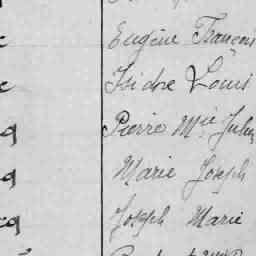 Eugène François
Isidore Louis
Pierre Mie Jules
Marie Joseph
Joseph Marie